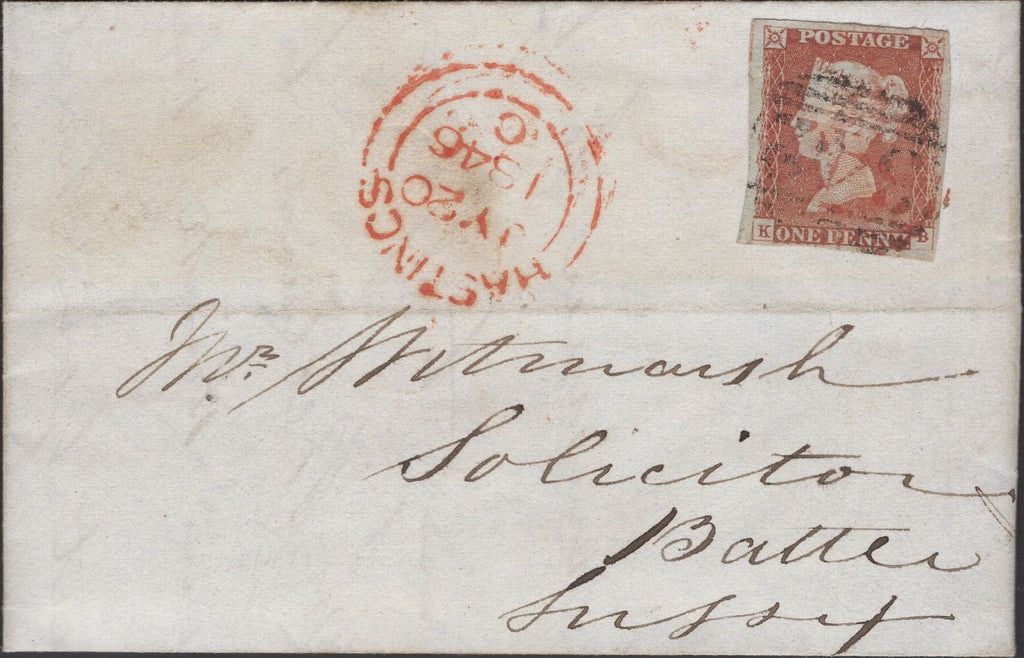 POSTAGE
K ONE PENNY B
HASTINGS
JY 20
1846
C
Mr.
Solicitor
Battle
Sussex